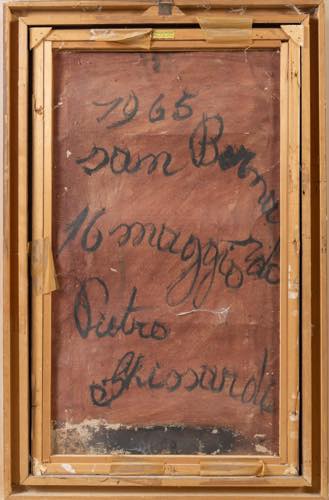 1965
san Bernar
16 maggio do
Pietro
Ghissardi